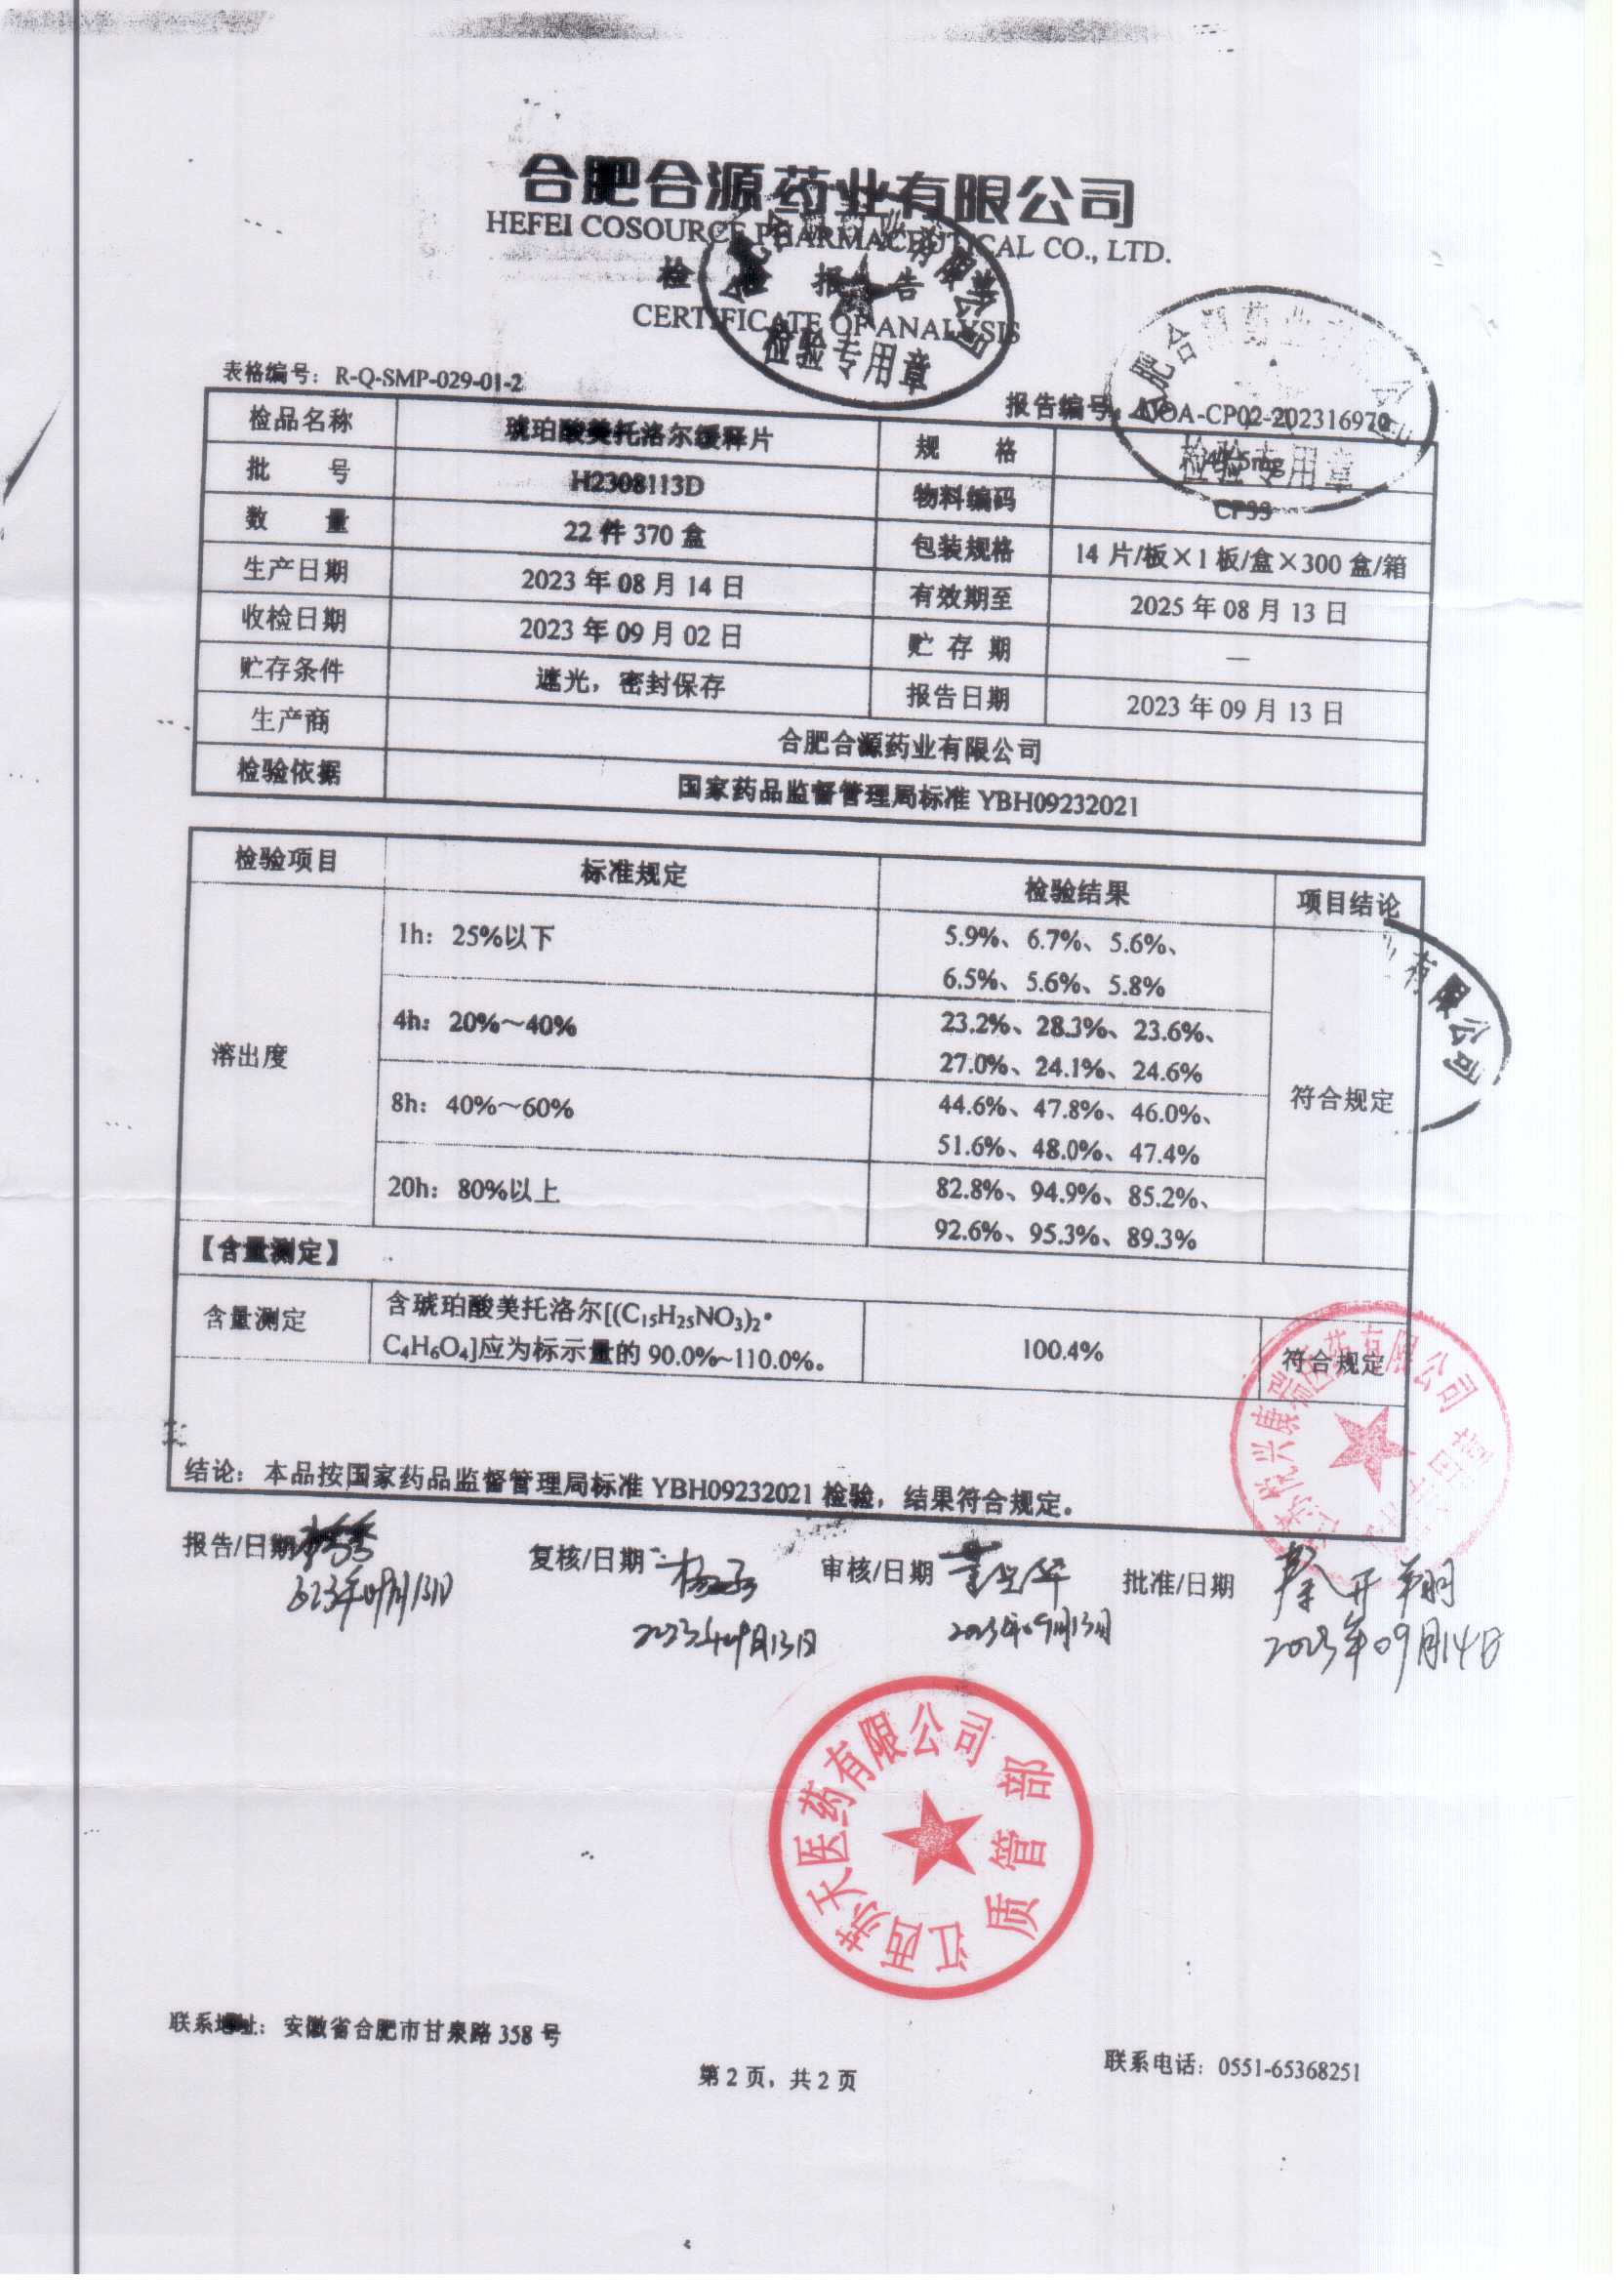 合肥合源药业有限公司
HEFEI COSOURCE PHARMACEUTICAL CO., LTD.
检 验 报 告
CERTIFICATE OF ANALYSIS
检验专用章
表格编号：R-Q-SMP-029-01-2
报告编号：COA-CP02-202316970
检验专用章
检品名称 琥珀酸美托洛尔缓释片 规 格 47.5mg
批 号 H2308113D 物料编码 CP33
数 量 22 件 370 盒 包装规格 14 片/板×1 板/盒×300 盒/箱
生产日期 2023 年 08 月 14 日 有效期至 2025 年 08 月 13 日
收检日期 2023 年 09 月 02 日 贮 存 期 —
贮存条件 遮光，密封保存 报告日期 2023 年 09 月 13 日
生产商 合肥合源药业有限公司
检验依据 国家药品监督管理局标准 YBH09232021
检验项目 标准规定 检验结果 项目结论
溶出度
1h：25%以下 5.9%、6.7%、5.6%、
6.5%、5.6%、5.8%
4h：20%～40% 23.2%、28.3%、23.6%、
27.0%、24.1%、24.6%
8h：40%～60% 44.6%、47.8%、46.0%、
51.6%、48.0%、47.4%
20h：80%以上 82.8%、94.9%、85.2%、
92.6%、95.3%、89.3%
符合规定
业有限公司
【含量测定】
含量测定 含琥珀酸美托洛尔[(C₁₅H₂₅NO₃)₂•
C₄H₆O₄]应为标示量的 90.0%~110.0%。 100.4% 符合规定
结论：本品按国家药品监督管理局标准 YBH09232021 检验，结果符合规定。
报告/日期 复核/日期 审核/日期 批准/日期
2023年09月13日 2023年09月13日 2023年09月13日 2023年09月14日
江西荣天医药有限公司
质管部
联系地址：安徽省合肥市甘泉路 358 号
联系电话：0551-65368251
第 2 页，共 2 页